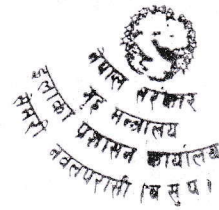 नेपाल सरकार
गृह मन्त्रालय
इलाका प्रशासन कार्यालय
सेमरी नवलपरासी (ब सु प।